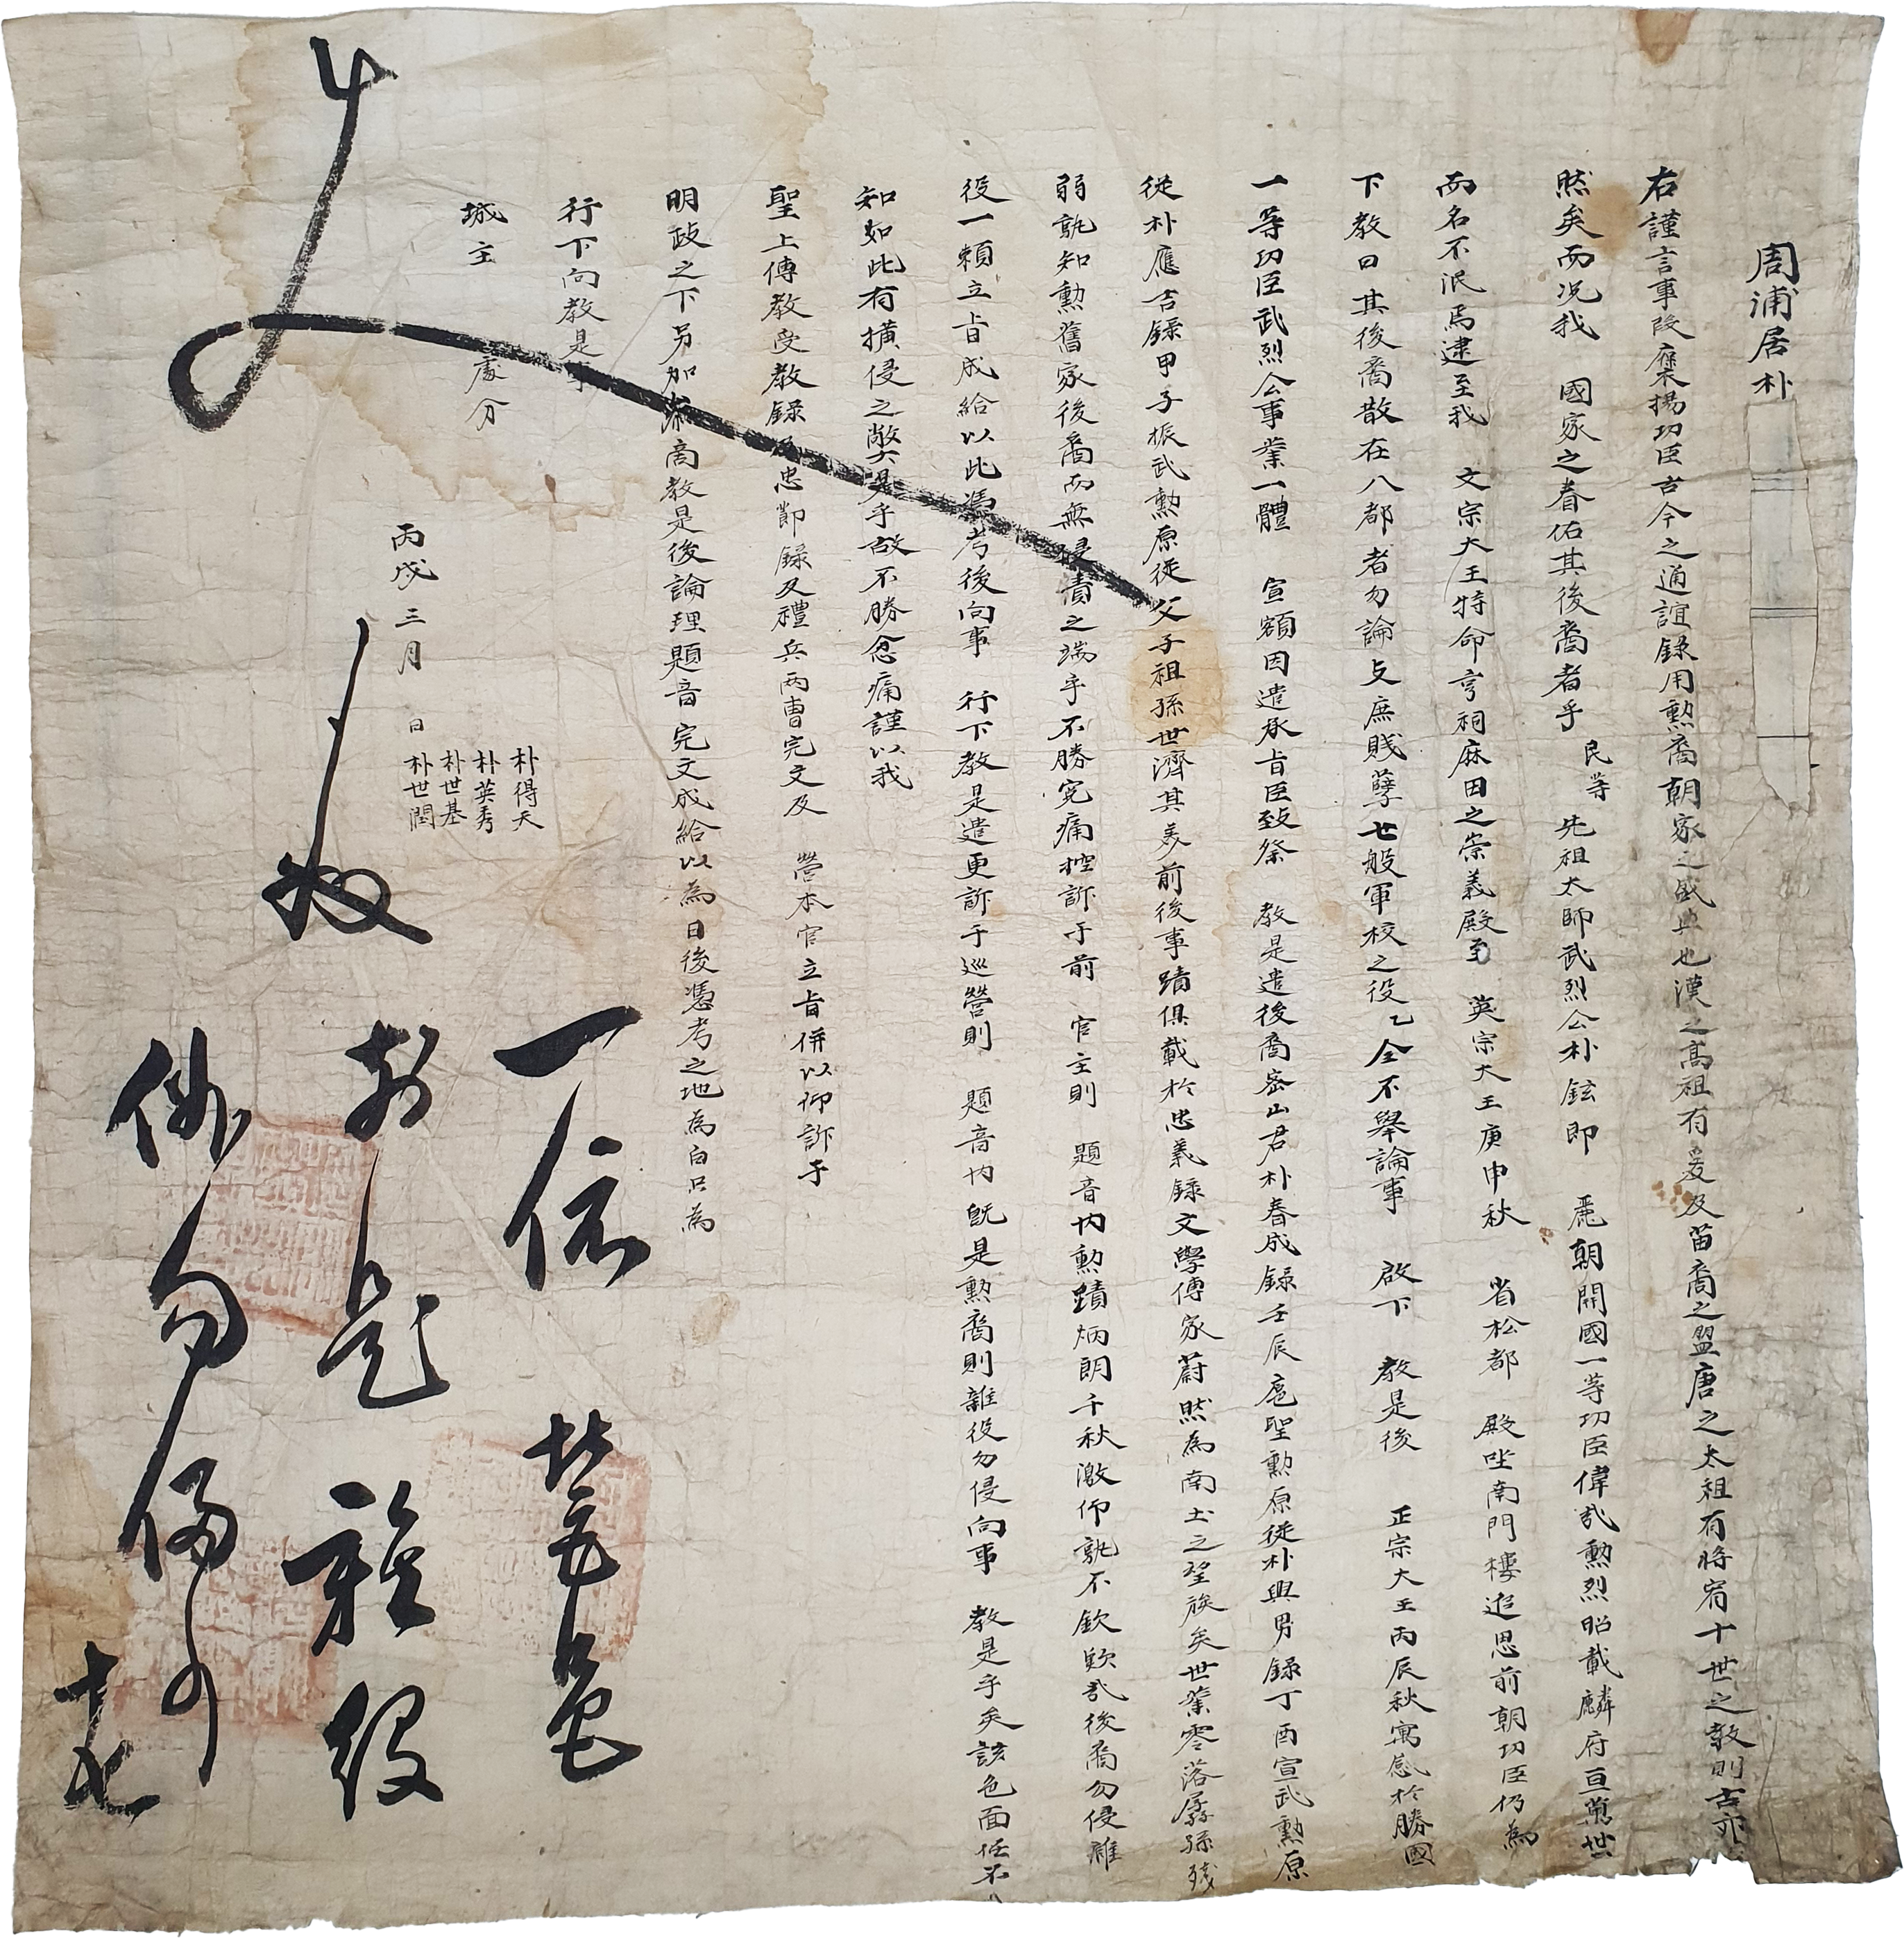 周浦居朴
右謹言事段 褒揚功臣古今之通誼錄用勳裔朝家之盛典也漢之高祖有爰及苗裔之盟唐之太祖有將宥十世之敎則古亦
然矣而况我 國家之眷佑其後裔者乎 民等 先祖太師武烈公朴鉉即 麗朝開國一等功臣偉哉勳烈昭載麟府亘萬世
而名不泯焉逮至我 文宗大王特命享祠麻田之崇義殿至 英宗大王庚申秋 省松都 殿坐南門樓追思前朝功臣仍爲
下敎曰其後裔散在八都者勿論支庶賤孼七般軍校之役乙全不擧論事 啟下 敎是後 正宗大王丙辰秋寓感於勝國
一等功臣武烈公事業一體 宣額因遣承旨臣致祭 敎是遣後裔密山君朴春成錄壬辰扈聖勳原從朴興男錄丁酉宣武勳原
從朴應吉錄甲子振武勳原從父子祖孫世濟其美前後事蹟俱載於忠義錄文學傳家蔚然爲南土之望族矣世業零落孱孫殘
弱孰知勳舊家後裔而無侵責之端乎不勝寃痛控訴于前 官主則 題音內勳蹟炳朗千秋激仰孰不欽歎哉後裔勿侵雜
役一賴立旨成給以此憑考後向事 行下敎是遣更訴于巡營則 題音內旣是勳裔則雜役勿侵向事 敎是乎矣該色面任不
知如此有橫侵之弊是乎故不勝忿痛謹以我
聖上傳敎受敎錄及忠節錄及禮兵兩曹完文及 營本官立旨併以仰訴于
明政之下另加 商敎是後論理題音完文成給以爲日後憑考之地爲白只爲
行下向敎是事
城主 處分
丙戌 三月 日
朴得天
朴英秀
朴世基
朴世潤
一依 營
前題雜役
勿侵